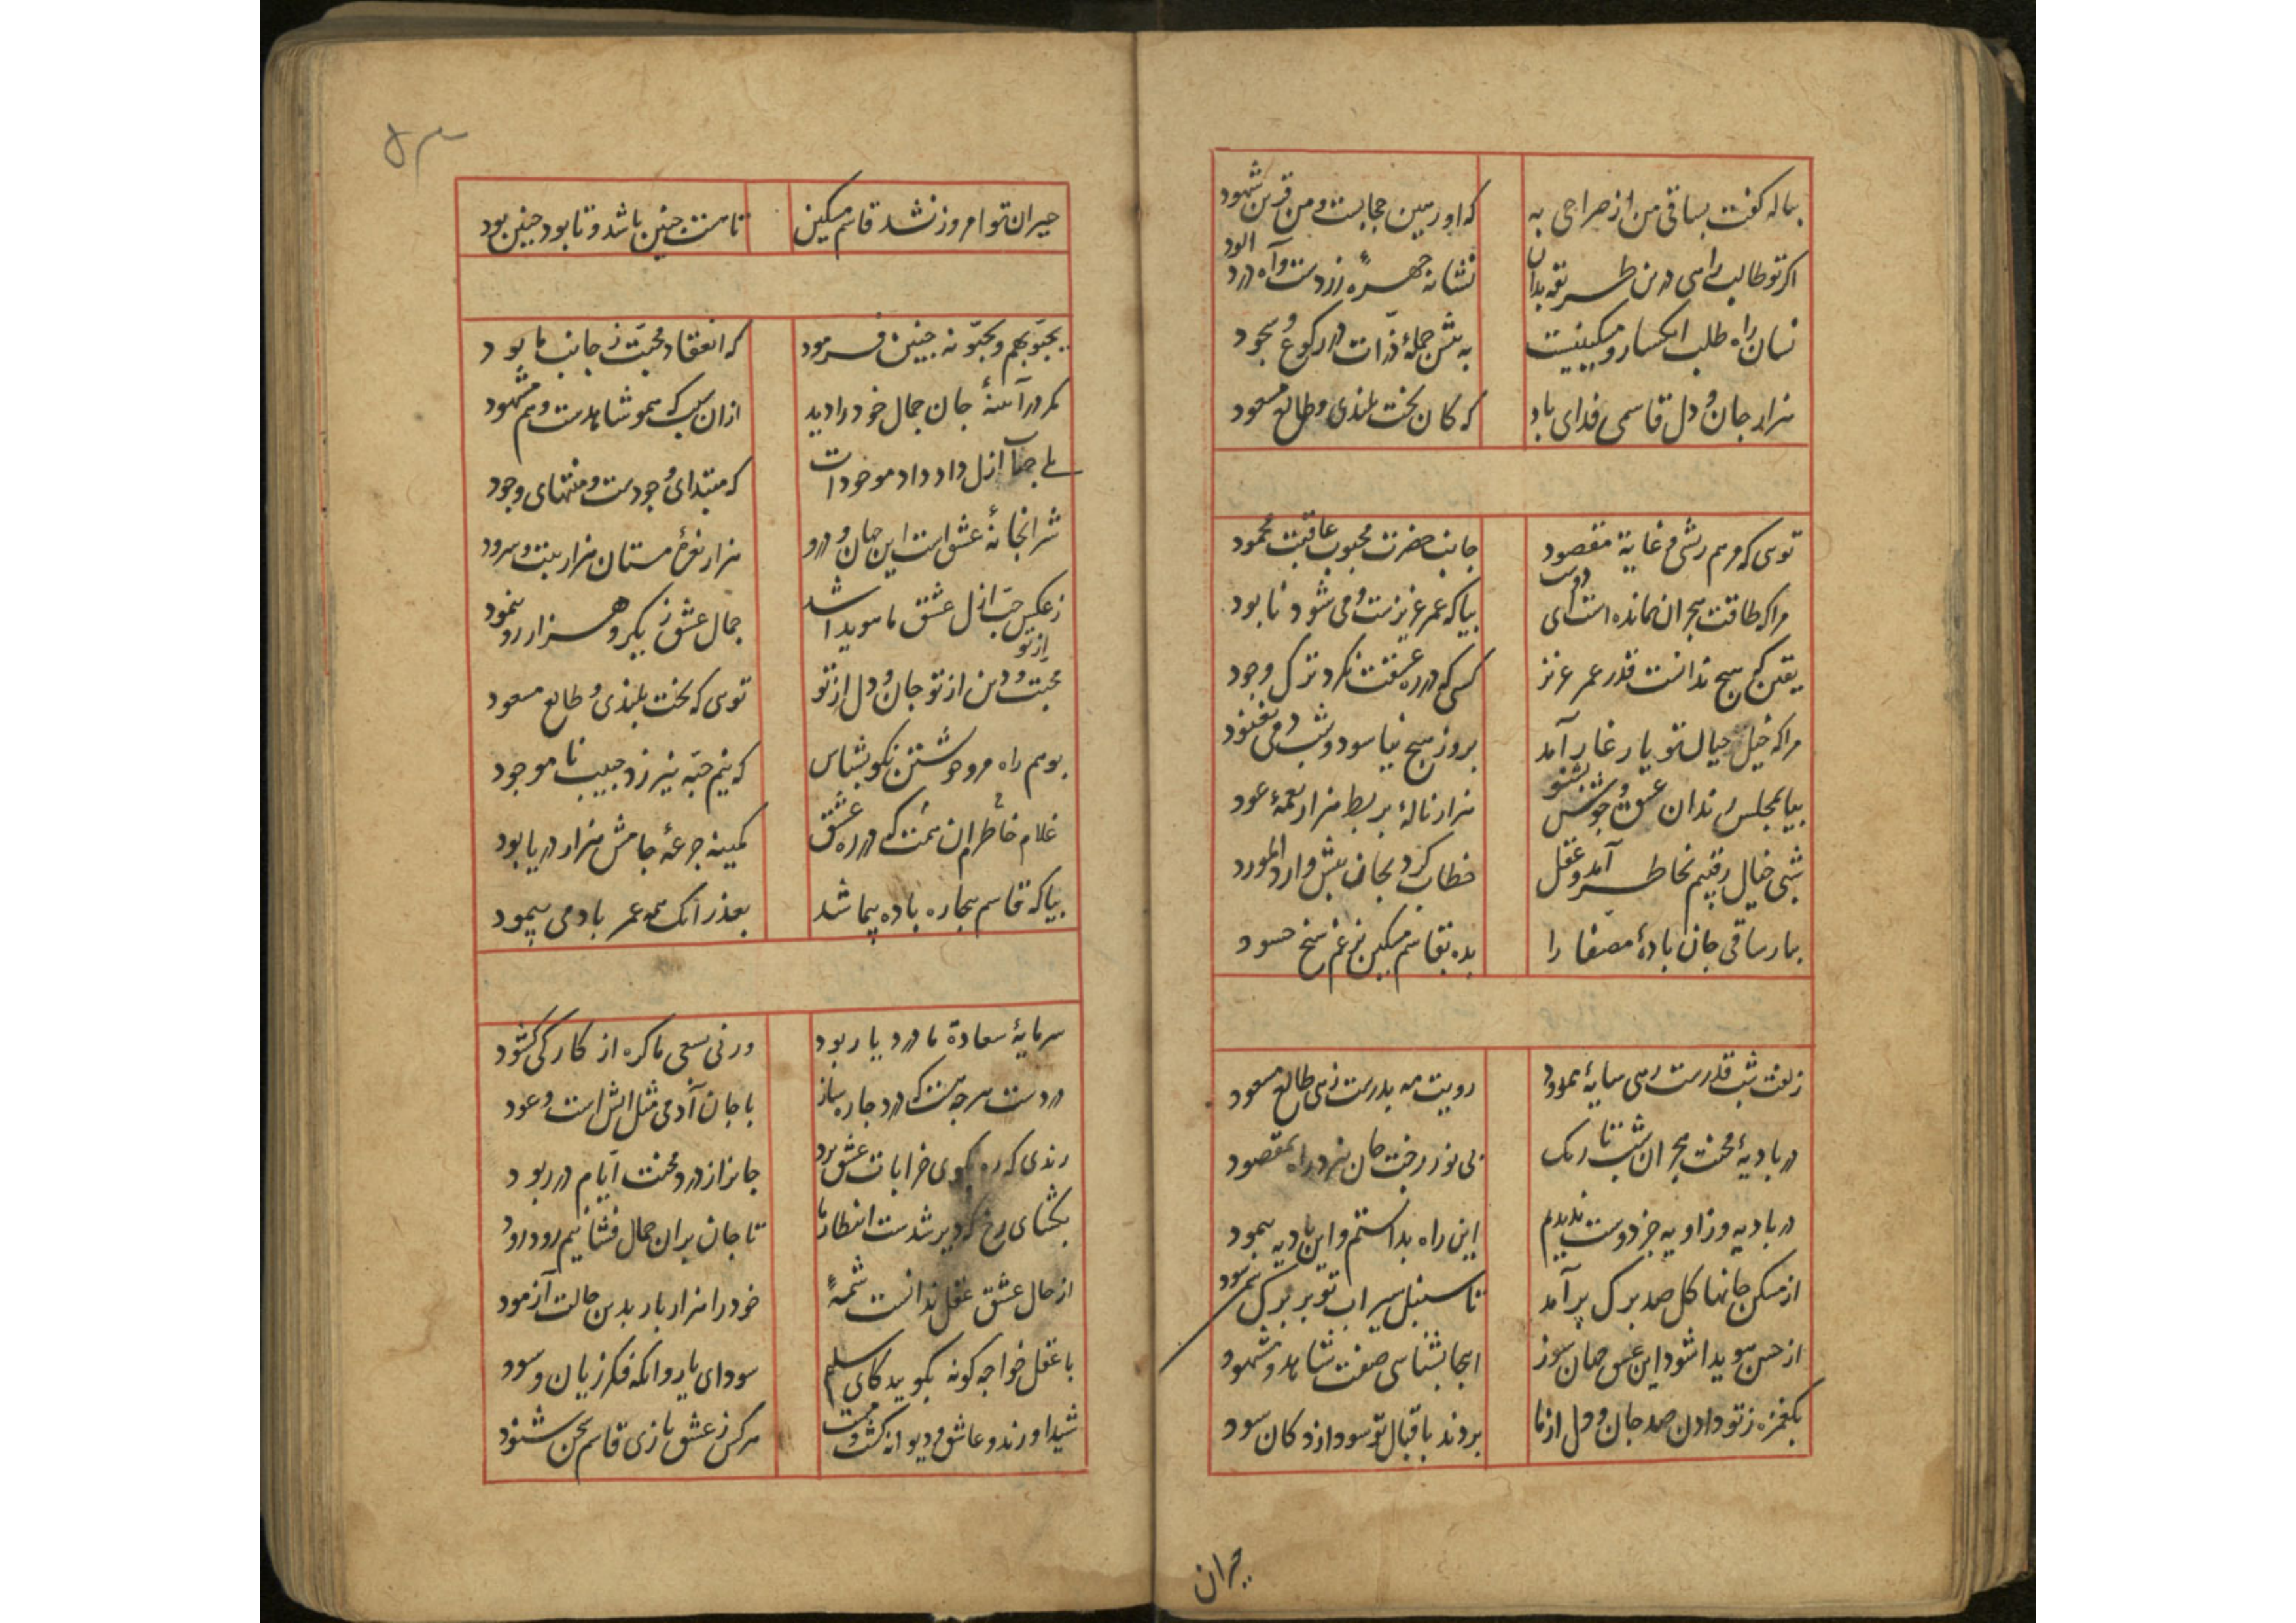 پیاله گفت بساقی من از صراحی به
که او رهین حجابست و من قرین شهود
اگر تو طالب راهی درین طریقه بدان
نشانه چهرهٔ زردست و آه درد آلود
نشان راه طلب انکسار و مسکینیست
به پیش جملهٔ ذرات در رکوع و سجود
هزار جان و دل قاسمی فدای باد
که کان بخت بلندی و طالع مسعود
توی که مرهم ریشی و غایة مقصود
جناب حضرت محبوب عاقبت محمود
مرا که طاقت هجران نمانده است ای دوست
بیا که عمر عزیزست و می شود نابود
یقین که هیچ ندانست قدر عمر عزیز
کسی که در ره عشقت نکرد ترک وجود
مرا که خیل خیال تو یار غار آمد
بروز هیچ نیاسود و شب دمی نغنود
بیا بمجلس رندان عشق و جوش بشنو
هزار نالهٔ بربط هزار نغمهٔ عود
شبی خیال رقیبم بخاطر آمد و عقل
خطاب کرد بجان بئس وارد المورد
بیار ساقی جان بادهٔ مصفا را
بده بقاسم مسکین برغم شیخ حسود
زلفت شب قدرست زهی سایهٔ ممدود
رویت مه بدرست زهی طالع مسعود
در بادیهٔ محنت هجران شب تاریک
بی نور رخت جان نبرد راه بمقصود
در بادیه و زاویه جز دوست ندیدم
این راه بدانستم و این بادیه پیمود
از مسکن جانها گل صد برگ برآمد
تا سنبل سیراب تو بر برگ سمن سود
از حسن هویدا شود این عشق جهان سوز
اینجا بشناسی صفت شاهد و مشهود
یک غمزه ز تو دادن صد جان و دل از ما
بردند باقبال تو سود از دکان سود
حیران
۵۳
حیران تو امروز نشد قاسم مسکین
تا هست چنین باشد و تا بود چنین بود
یحبّوبهم و یحبّونه چنین فرمود
که انعقاد محبّت ز جانب ما بود
مگر در آینهٔ جان جمال خود را دید
ازان سبب که همو شاهدست و هم مشهود
بلی جناب ازل داد داد موجودات
که مبتدای وجودست و منتهای وجود
شرابخانهٔ عشق است این جهان و درو
هزار نعرهٔ مستان هزار بیت و سرود
ز عکس حبّ ازل عشق ما هویدا شد
جمال عشق ز یک رو هزار رو بنمود
محبت و دین از تو جان و دل از تو
توی که بخت بلندی و طالع مسعود
بوهم راه مرو خویشتن نکو بشناس
که نیم حبّه نیرزد حبیب ناموجود
غلام خاطر آن همتم که در ره عشق
کمینه جرعهٔ جامش هزار دریا بود
بیا که قاسم بیچاره باده پیما شد
بعذر آنک همه عمر باد می پیمود
سرمایهٔ سعادة ما درد یار بود
ورنی بسعی ما گره از کار کی گشود
دردست هرچه هست که درد چاره ساز
با جان آدمی مثل آتش است و عود
رندی که ره بکوی خرابات عشق برد
جانرا ز درد و محنت ایّام در ربود
بگشای رخ که دیر شدست انتظار ما
تا جان بران جمال فشانیم زود زود
از حال عشق عقل ندانست شمهٔ
خود را هزار بار بدین حالت آزمود
با عقل خواجه گونه بگویید کای سلیم
سودای یار وانگه فکر زیان و سود
شیدا و رند و عاشق و دیوانه گشت و مست
هرکس ز عشق بازی قاسم سخن شنود